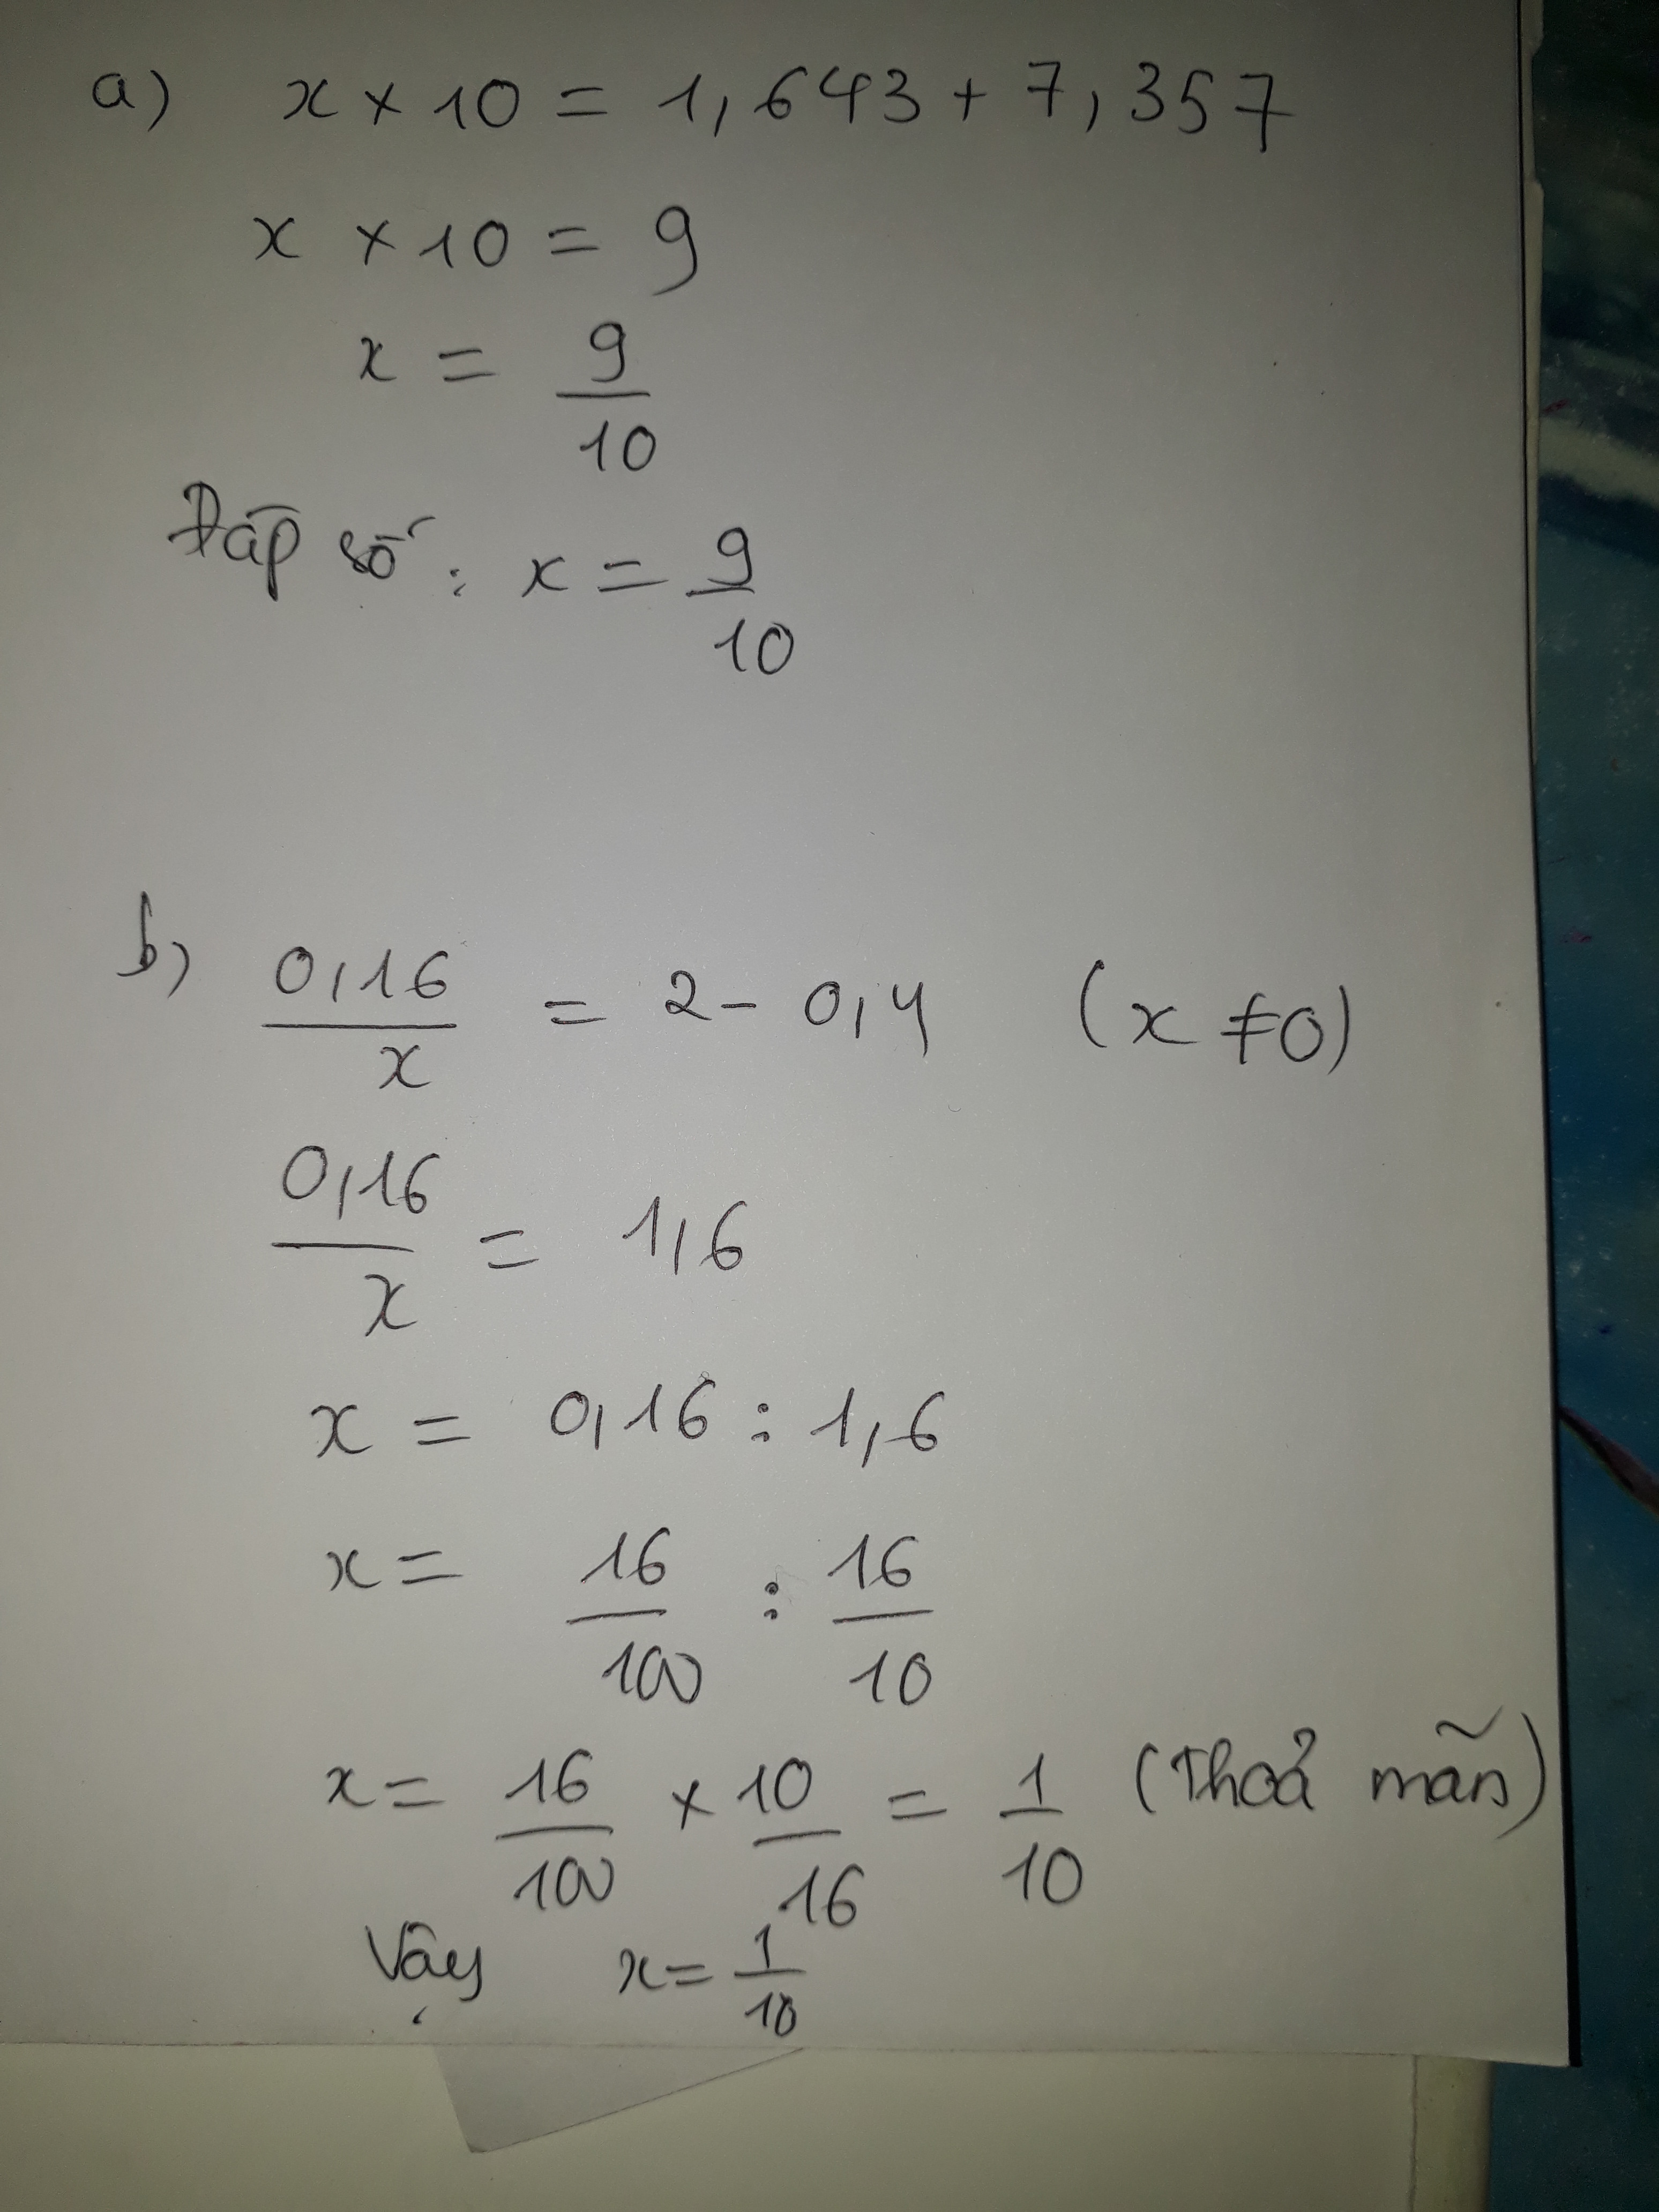 a) x × 10 = 1,643 + 7,357
x × 10 = 9
x = 9/10
Đáp số: x = 9/10
b) 0,16/x = 2 - 0,4 (x ≠ 0)
0,16/x = 1,6
x = 0,16 : 1,6
x = 16/100 : 16/10
x = 16/100 × 10/16 = 1/10 (Thoả mãn)
Vậy x = 1/10